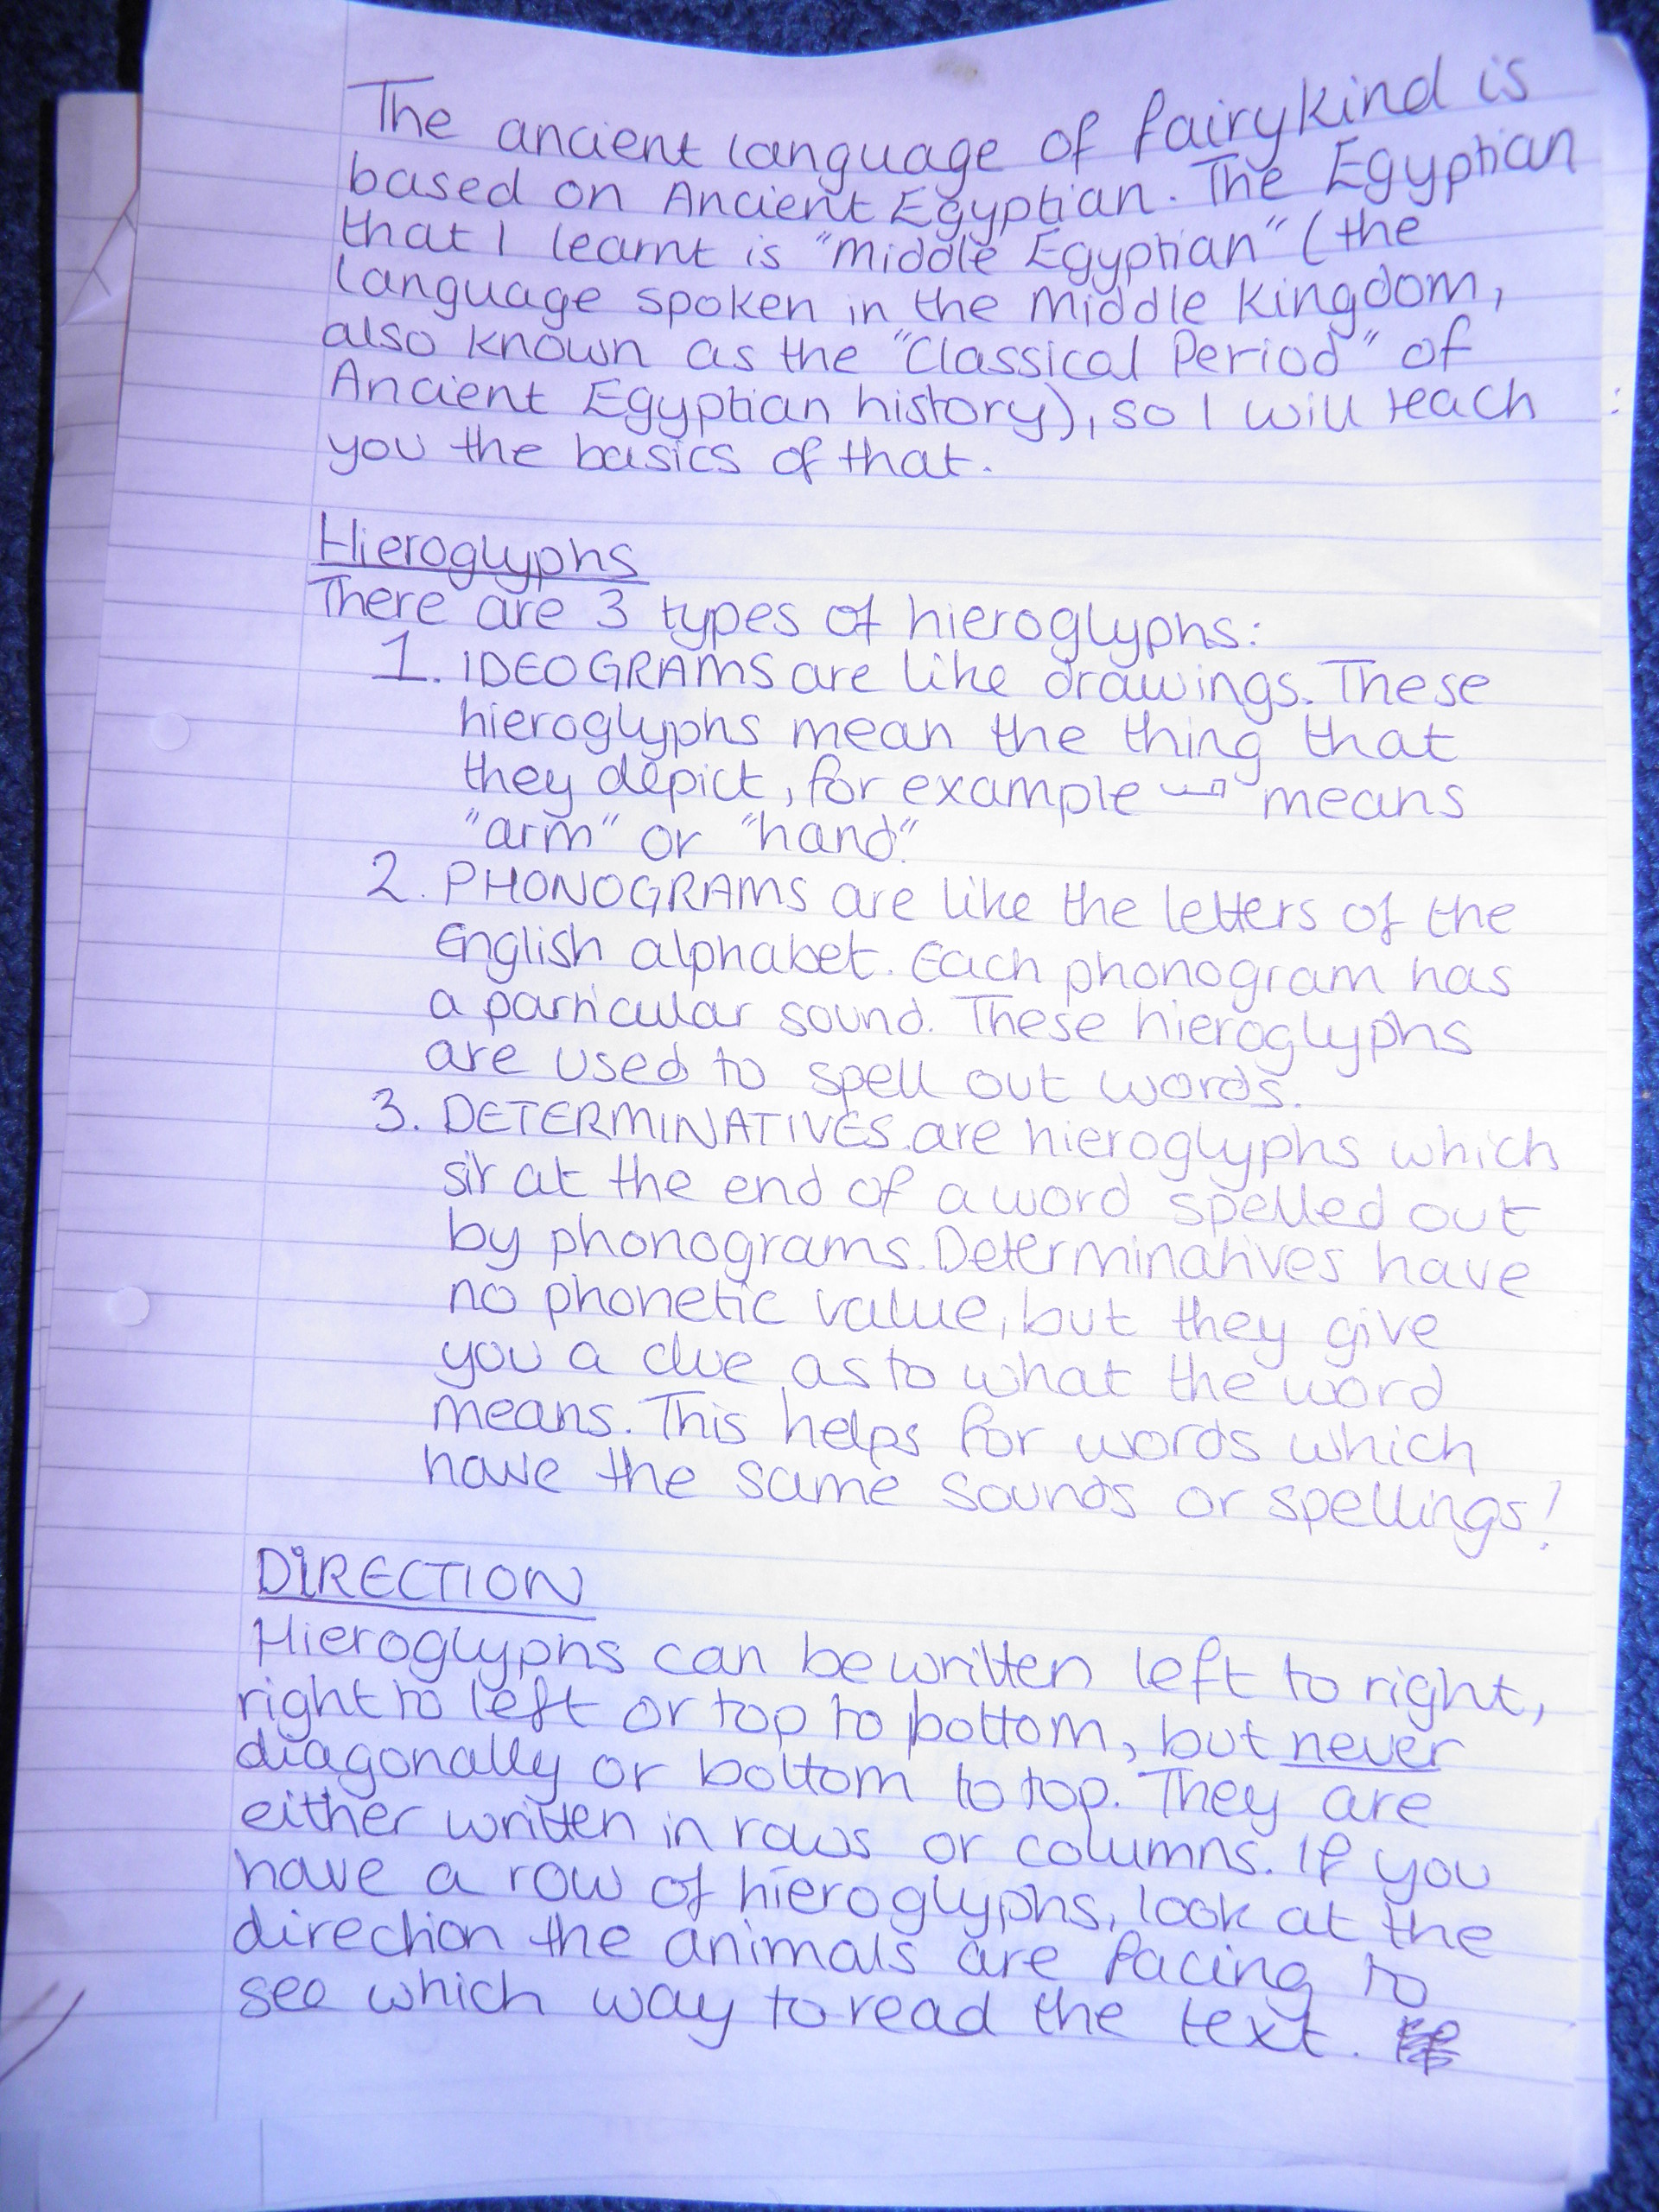 The ancient language of fairykind is
based on Ancient Egyptian. The Egyptian
that I learnt is "Middle Egyptian" (the
language spoken in the Middle Kingdom,
also known as the "Classical Period" of
Ancient Egyptian history), so I will teach
you the basics of that.
Hieroglyphs
There are 3 types of hieroglyphs:
1. IDEOGRAMS are like drawings. These
hieroglyphs mean the thing that
they depict, for example means
"arm" or "hand."
2. PHONOGRAMS are like the letters of the
English alphabet. Each phonogram has
a particular sound. These hieroglyphs
are used to spell out words.
3. DETERMINATIVES are hieroglyphs which
sit at the end of a word spelled out
by phonograms. Determinatives have
no phonetic value, but they give
you a clue as to what the word
means. This helps for words which
have the same sounds or spellings!
DIRECTION
Hieroglyphs can be written left to right,
right to left or top to bottom, but never
diagonally or bottom to top. They are
either written in rows or columns. If you
have a row of hieroglyphs, look at the
direction the animals are facing to
see which way to read the text.